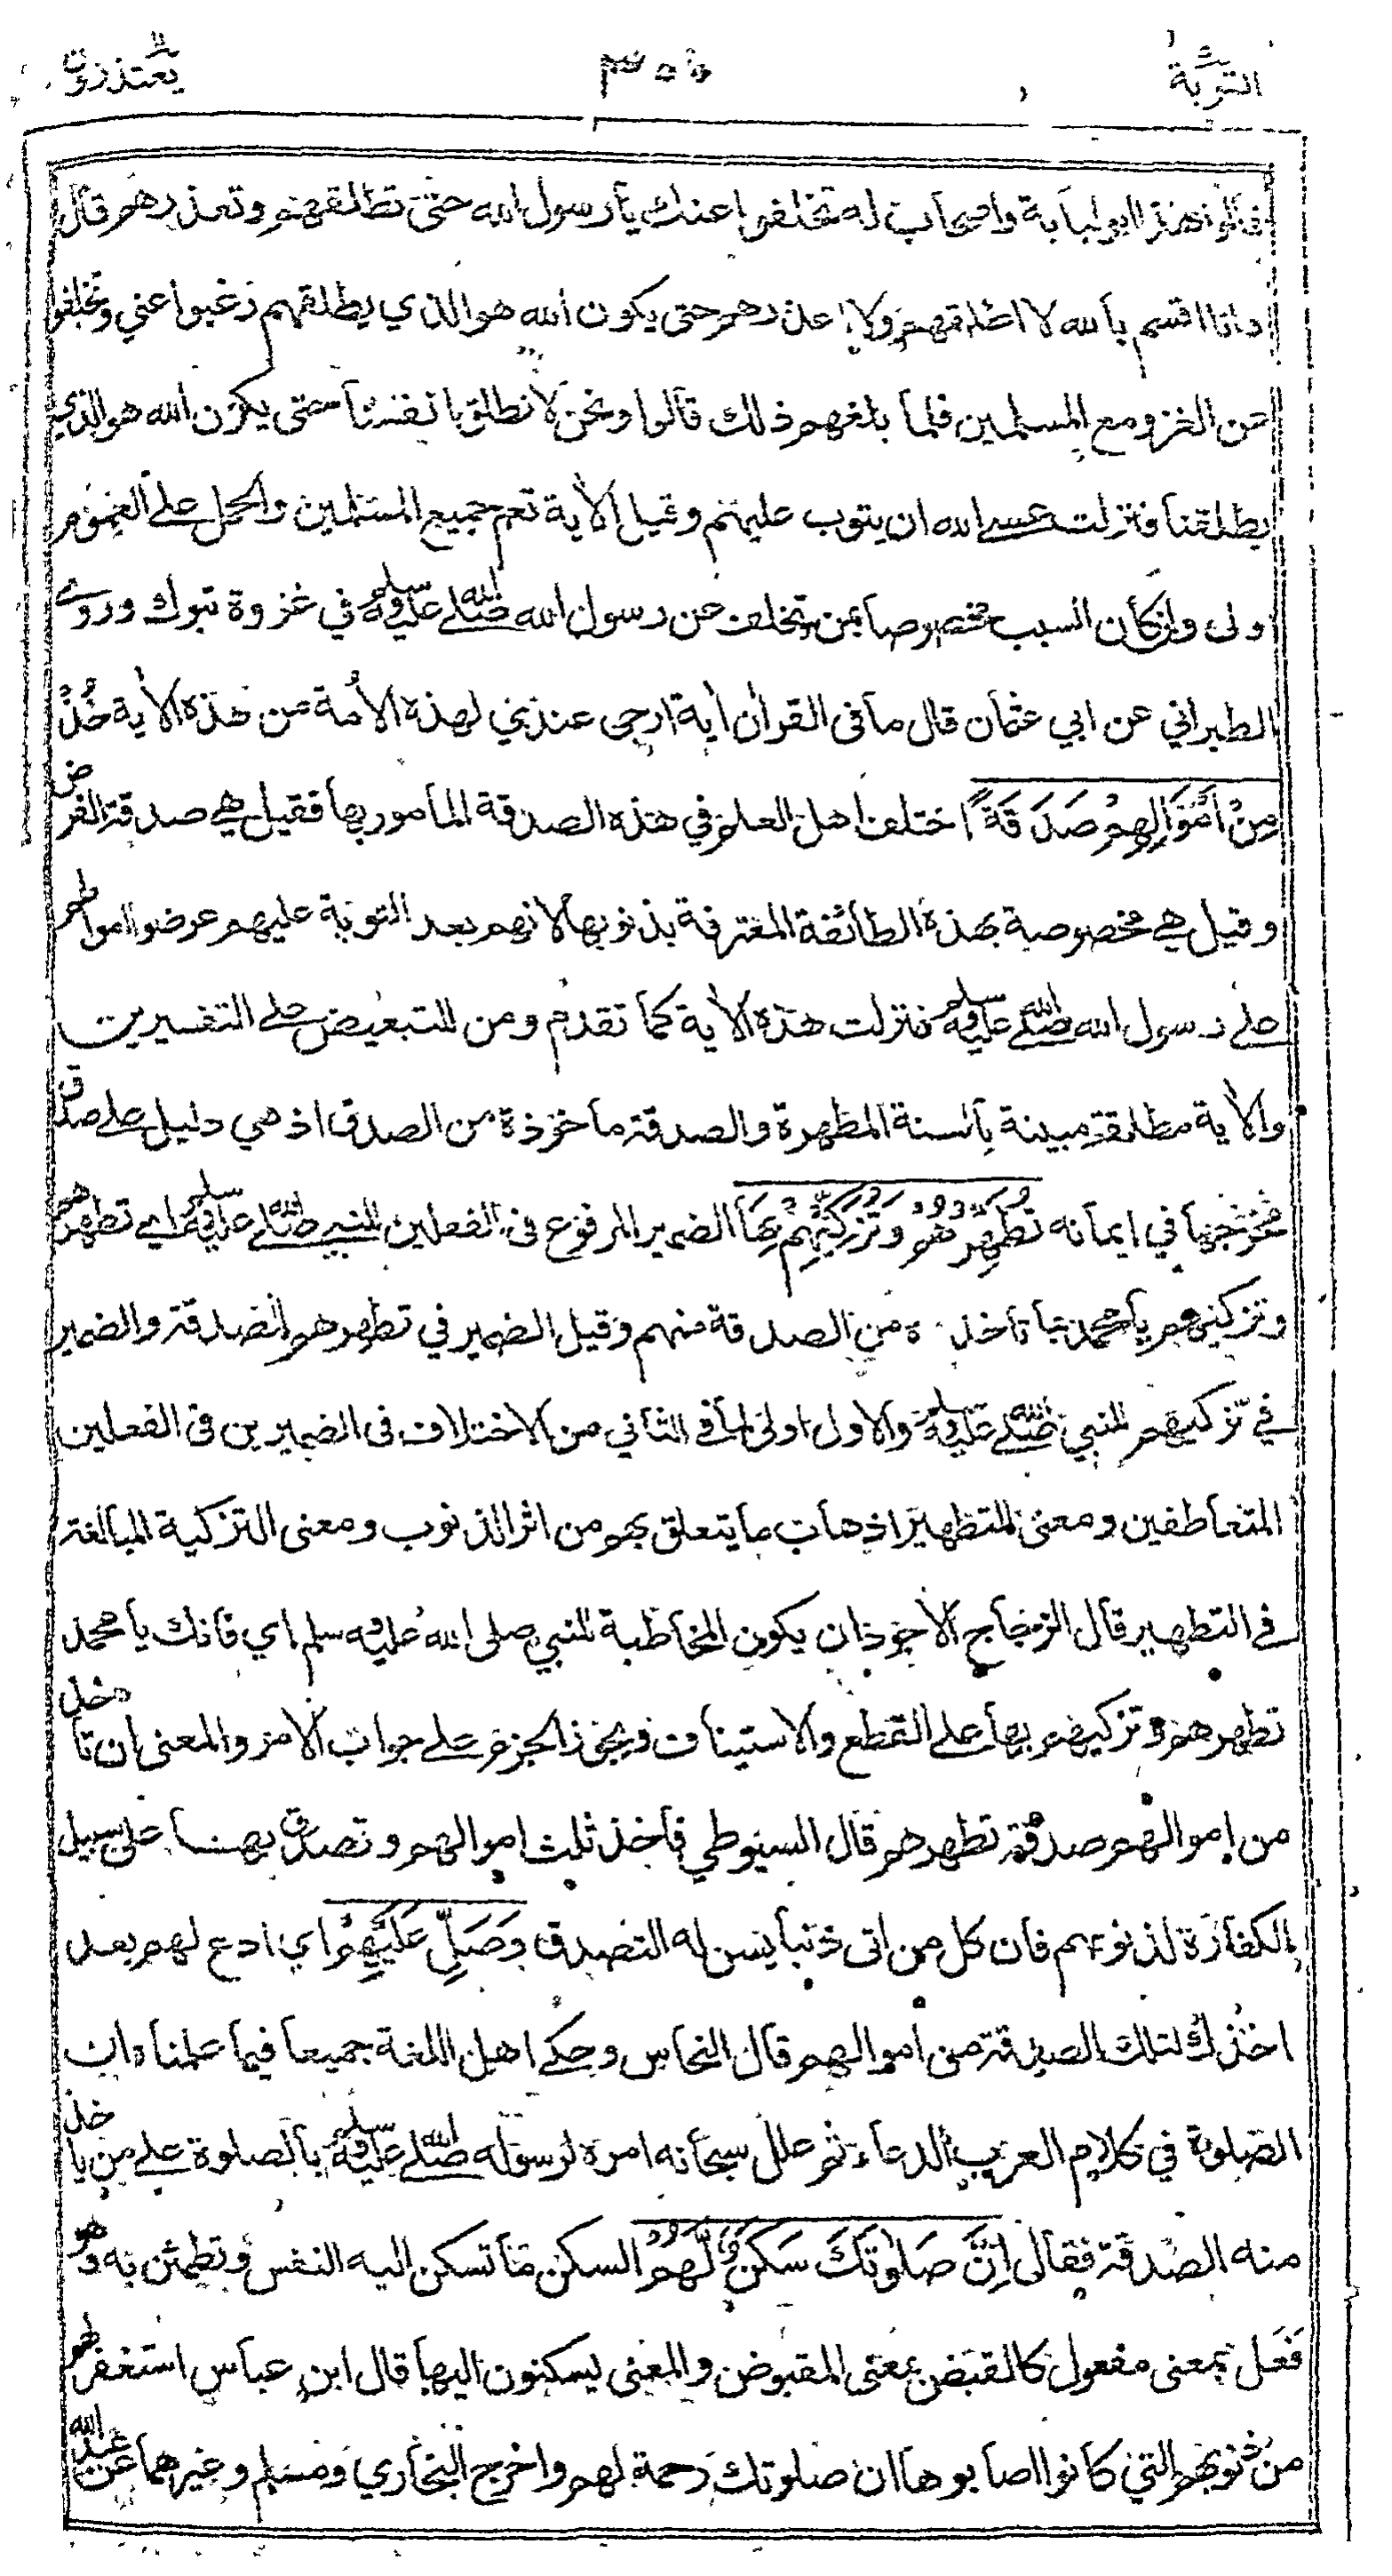 التوبة ٣٥٥ يعتذرون
فقالوا هذا ابو لبابة واصحاب له تخلفوا عنك يا رسول الله حتى تطلقهم وتعذرهم قال
وانا اقسم بالله لا اطلقهم ولا اعذرهم حتى يكون الله هو الذي يطلقهم رغبوا عني وتخلفوا
عن الغزو مع المسلمين فلما بلغهم ذلك قالوا ونحن لا نطلق بانفسنا حتى يكون الله هو الذي
يطلقنا فنزلت عسى الله ان يتوب عليهم وقيل الأية تعم جميع المسلمين والحمل على العموم
اولى وان كان السبب مخصوصا بمن تخلف عن رسول الله صلى الله عليه وسلم في غزوة تبوك وروى
الطبراني عن ابي عثمان قال ما فى القرأن أية ارجى عندي لهذه الأمة من هذه الأية خُذْ
مِنْ أَمْوَالِهِمْ صَدَقَةً اختلف اهل العلم في هذه الصدقة المأمور بها فقيل هي صدقة الفرض
وقيل هي مخصوصة بهذه الطائفة المعترفة بذنوبها لانهم بعد التوبة عليهم عرضوا اموالهم
على رسول الله صلى الله عليه وسلم فنزلت هذه الأية كما تقدم ومن للتبعيض على التفسيرين
والأية مطلقة مبينة بالسنة المطهرة والصدقة ماخوذة من الصدق اذ هي دليل على صدق
مخرجها في ايمانه تُطَهِّرُهُمْ وَتُزَكِّيهِمْ بِهَا الضمير المرفوع فى الفعلين للنبي صلى الله عليه وسلم اي تطهرهم
وتزكيهم يا محمد بما تاخذه من الصدقة منهم وقيل الضمير في تطهرهم للصدقة والضمير
في تزكيهم للنبي صلى الله عليه وسلم والاول اولى لما في الثاني من الاختلاف فى الضميرين فى الفعلين
المتعاطفين ومعنى التطهير اذهاب ما يتعلق بهم من اثر الذنوب ومعنى التزكية المبالغة
في التطهير قال الزجاج الأجود ان يكون المخاطبة للنبي صلى الله عليه وسلم اي فانك يا محمد
تطهرهم وتزكيهم بها على القطع والاستيناف ويجوز الجزم على جواب الامر والمعنى ان تاخذ
من اموالهم صدقة تطهرهم قال السيوطي فأخذ ثلث اموالهم وتصدق بها على سبيل
الكفارة لذنوبهم فان كل من اتى ذنبا يسن له التصدق وَصَلِّ عَلَيْهِمْ اي ادع لهم بعد
اخذك لتلك الصدقة من اموالهم قال النحاس وحكى اهل اللغة جميعا فيما علمناه ان
الصلوة في كلام العرب الدعاء ثم علل سبحانه امره لرسوله صلى الله عليه وسلم بالصلوة على من ياخذ
منه الصدقة فقال اِنَّ صَلٰوتَكَ سَكَنٌ لَّهُمْ السكن ما تسكن اليه النفس وتطمئن به وهو
فَعَل بمعنى مفعول كالقبض بمعنى المقبوض والمعنى يسكنون اليها قال ابن عباس استغفر لهم
من ذنوبهم التي كانوا اصابوها ان صلوتك رحمة لهم واخرج البخاري ومسلم وغيرهما عن عبد الله